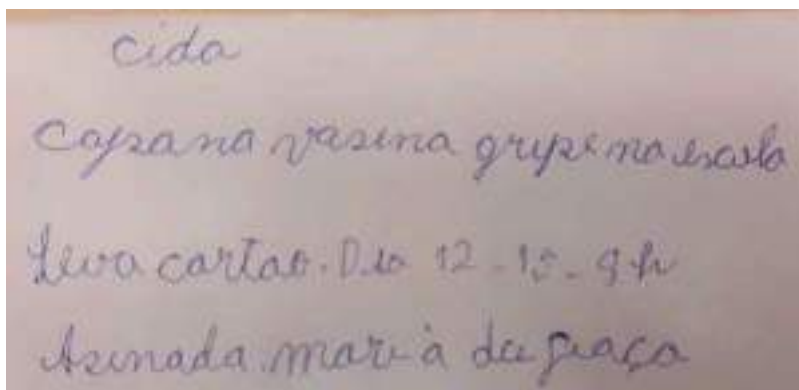 Cida
Capana vasina gripe na escola
Leva cartao. Dia 12 - 15 - 9 h
Asinada maria da graça